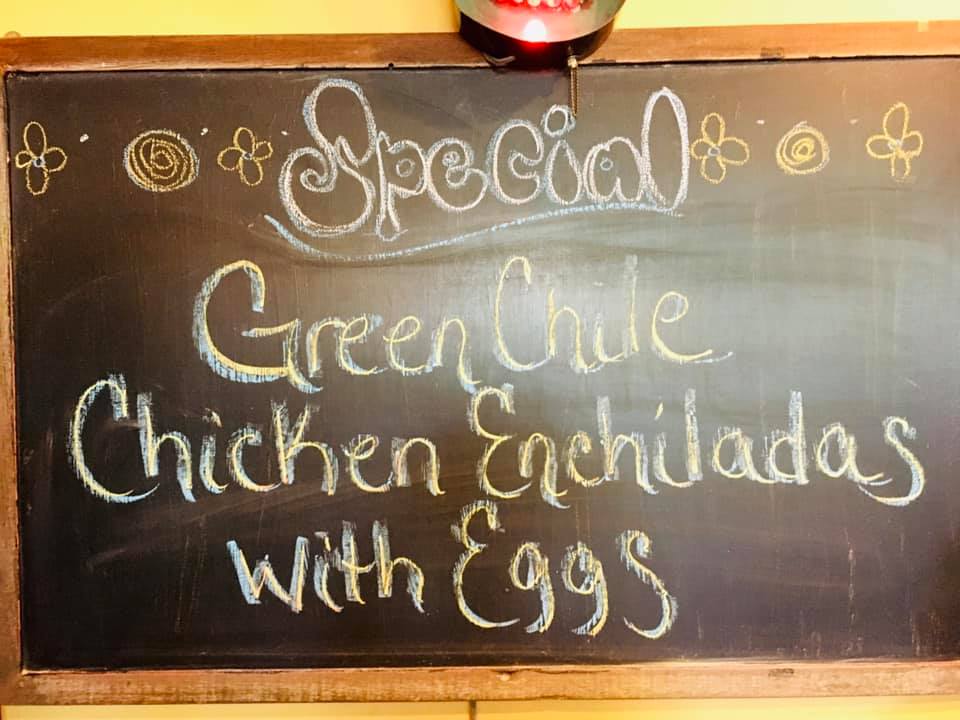 Special
Green Chile
Chicken Enchiladas
with Eggs